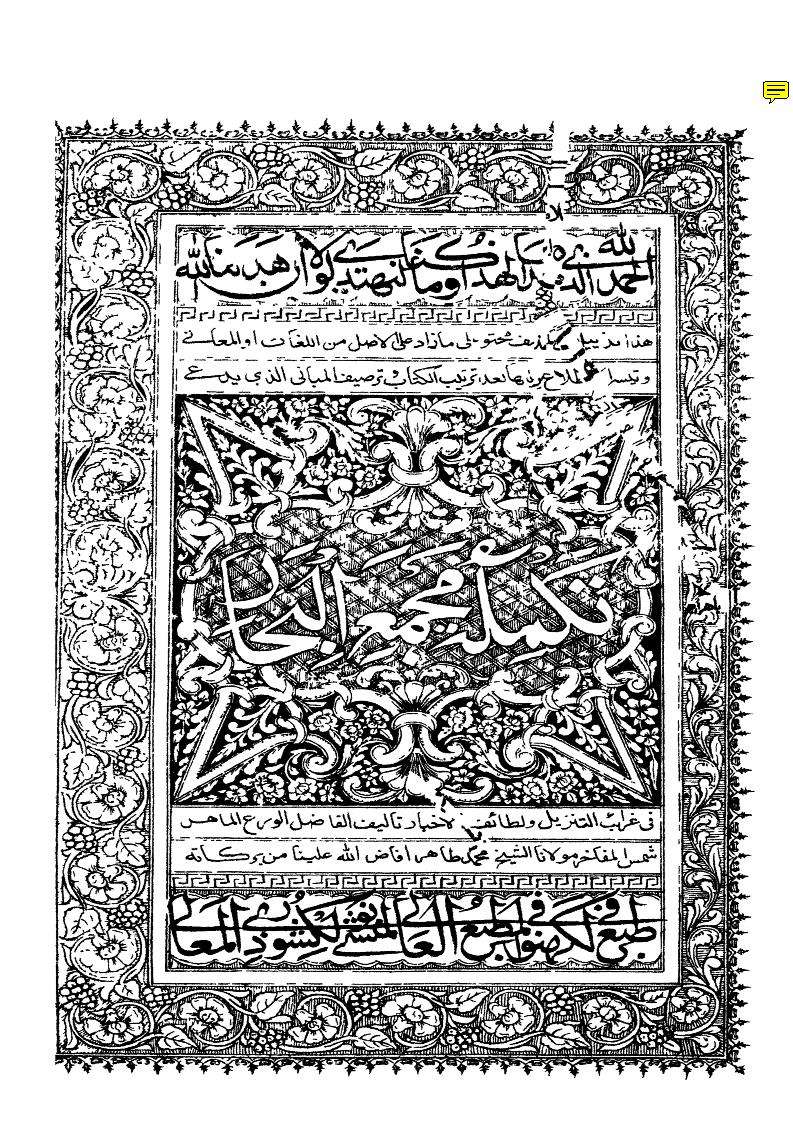 الحمد لله الذي هدانا لهذا وما كنا لنهتدي لولا ان هدىنا الله
هذا تذييل محتو على ما زاد على الاصل من اللغات او المعاني
بعد ترتيب الكتاب ترصيف المباني الذي يدعى
تكملة مجمع البحار
فى غرائب التنزيل ولطائف الاخبار تاليف الفاضل الورع الماهر
شمس المفاخر مولانا الشيخ محمد طاهر افاض الله علينا من بركاته
طبع فى المطبع العالى لمنشى نولكشور فى لكهنو